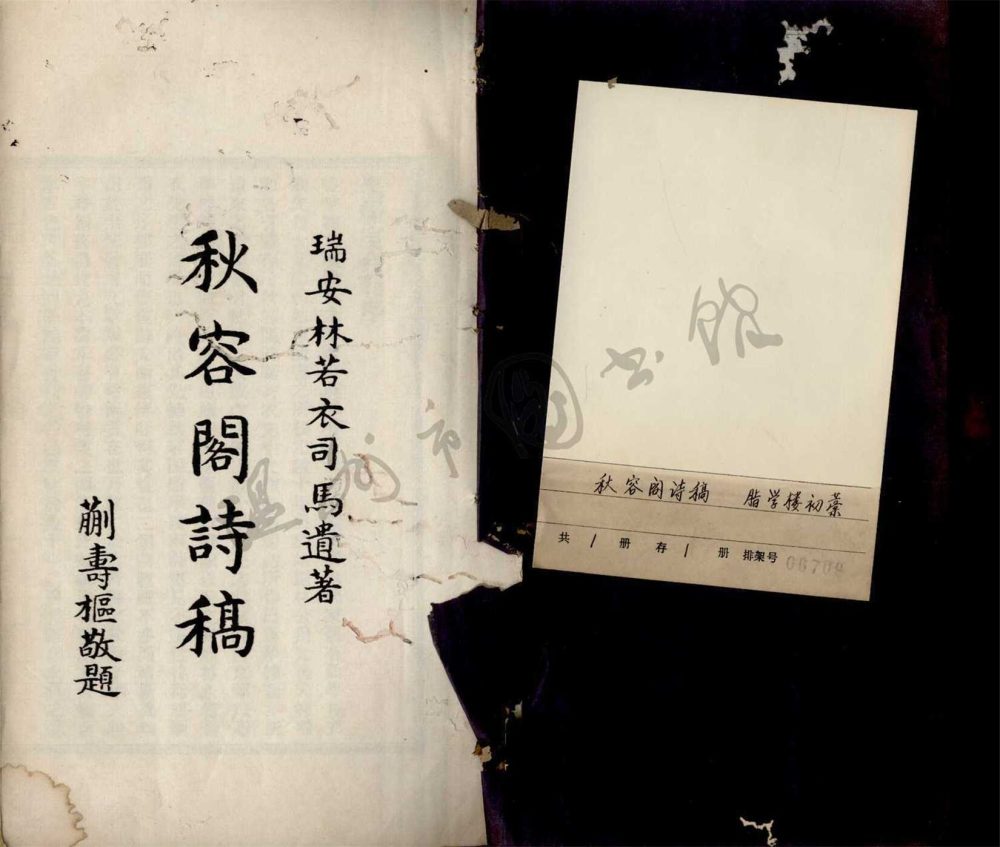 瑞安林若衣司馬遺著
秋容閣詩稿
蒯壽樞敬題
秋容阁诗稿 脂学楼初藁
共 1 册 存 1 册 排架号 06709
温州市图书馆